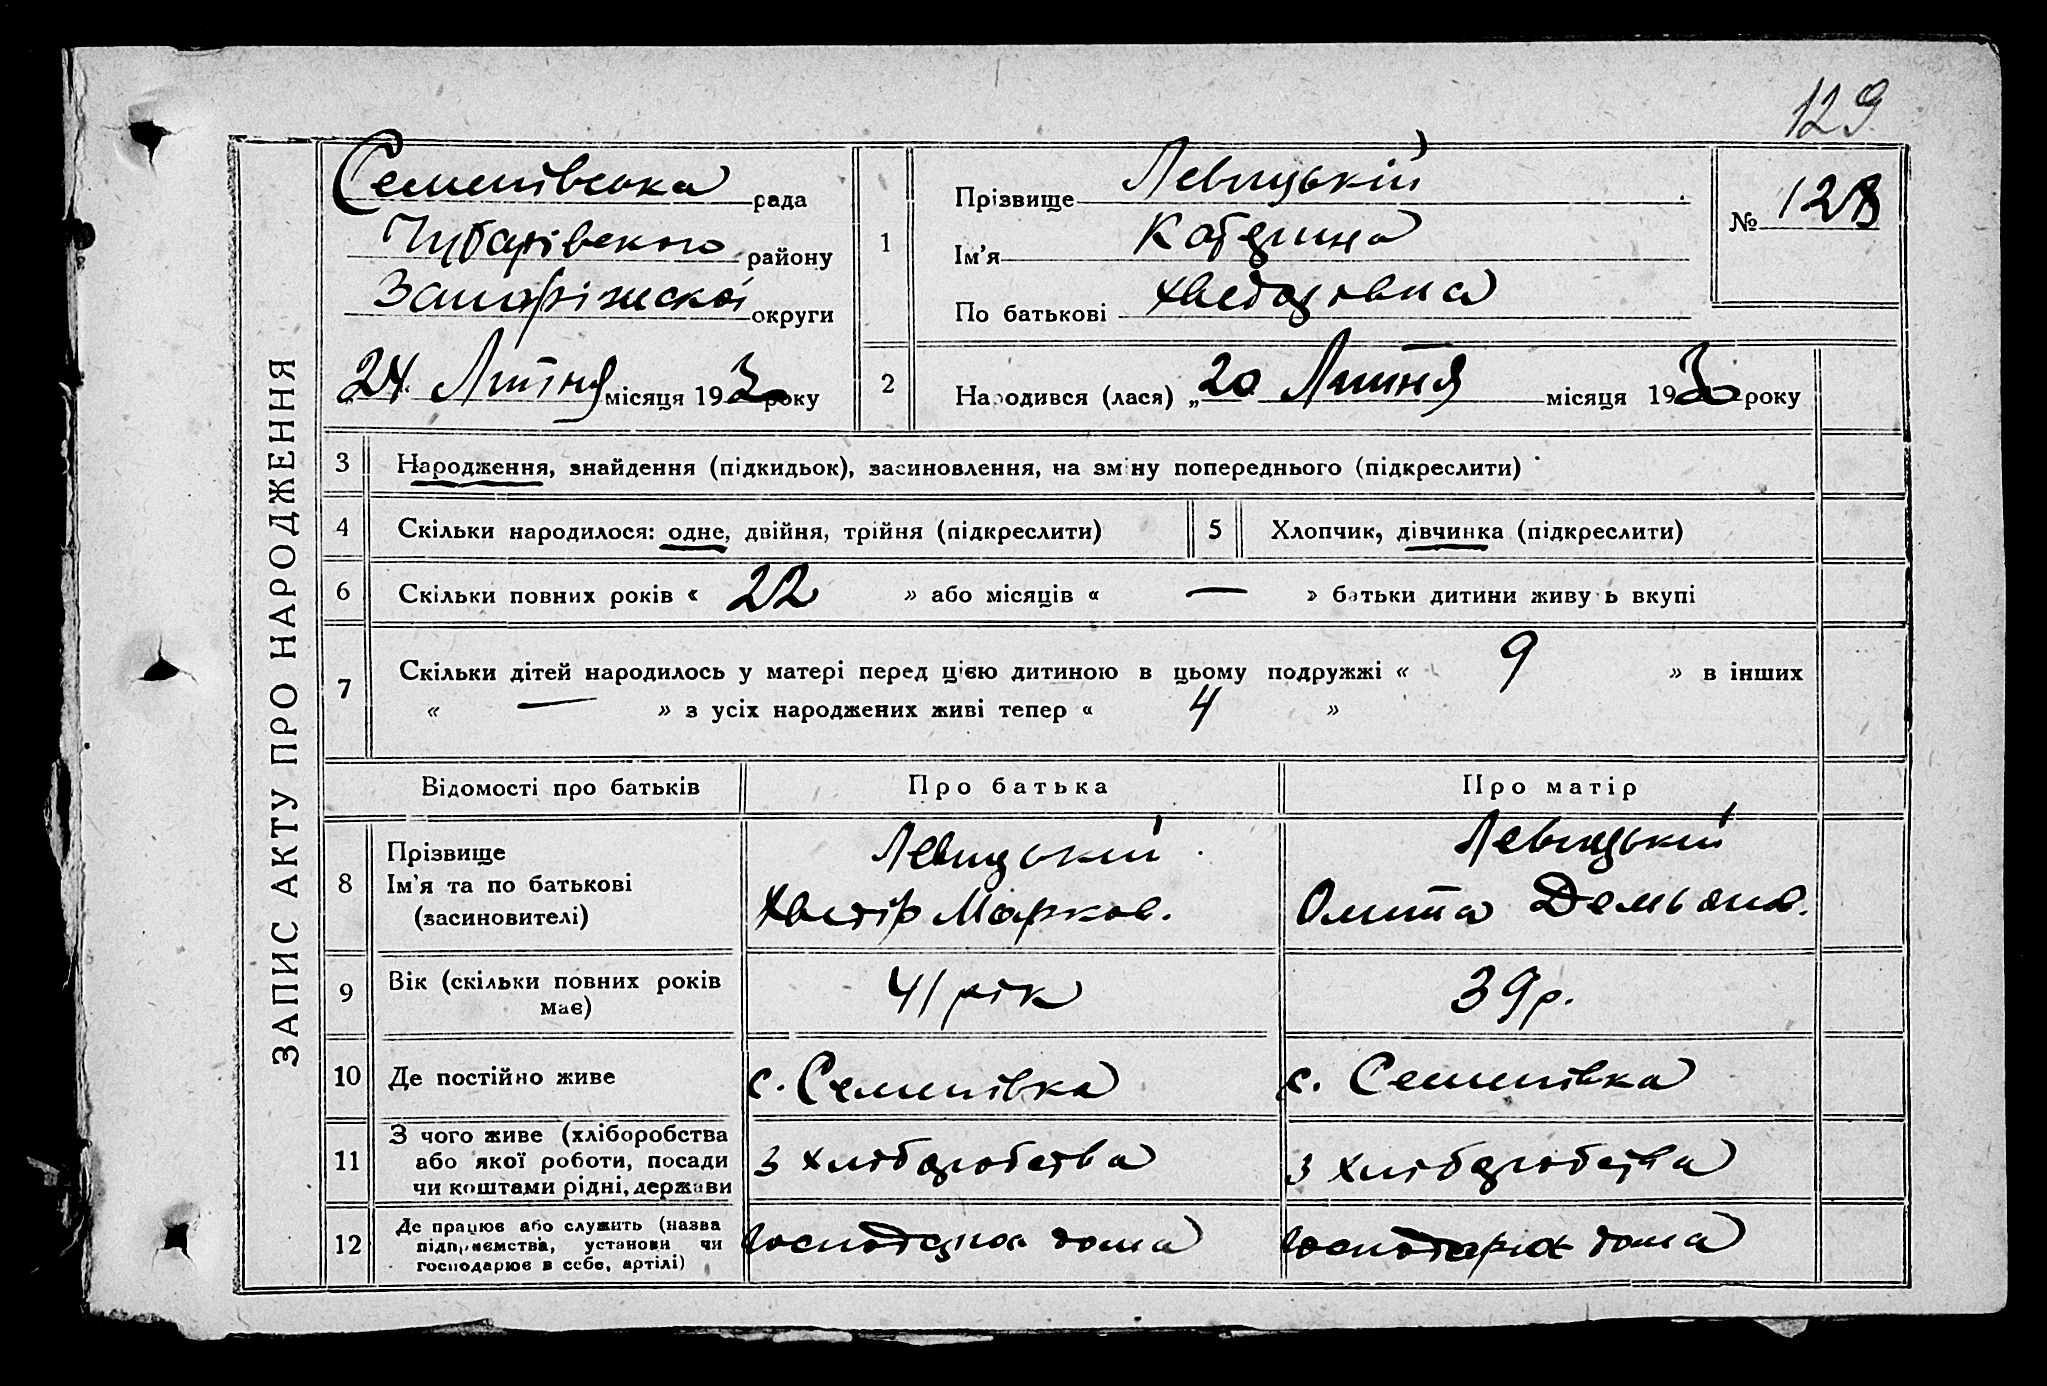 129
ЗАПИС АКТУ ПРО НАРОДЖЕННЯ
Семенівська рада
Чубарівского району
Запоріжскої округи
„24 Липня місяця 1930 року
1
Прізвище Левицький
Ім'я Катерина
По батькові Хведорівна
№ 128
2 Народився (лася) „20 Липня місяця 1930 року
3 Народження, знайдення (підкидьок), засиновлення, на зміну попереднього (підкреслити)
4 Скільки народилося: одне, двійня, трійня (підкреслити) 5 Хлопчик, дівчинка (підкреслити)
6 Скільки повних років « 22 » або місяців « — » батьки дитини живуть вкупі
7 Скільки дітей народилось у матері перед цією дитиною в цьому подружжі « 9 » в інших
« — » з усіх народжених живі тепер « 4 »
Відомості про батьків Про батька Про матір
8
Прізвище Левицький Левицький
Ім'я та по батькові Хведір Марков. Демьянов.
(засиновителі)
9 Вік (скільки повних років має) 41 рік 39 р.
10 Де постійно живе с. Семенівка с. Семенівка
11 З чого живе (хліборобства або якої роботи, посади чи коштами рідні, держави з хліборобства з хліборобства
12 Де працює або служить (назва підприємства, установи чи господарює в себе, артілі) дома дома